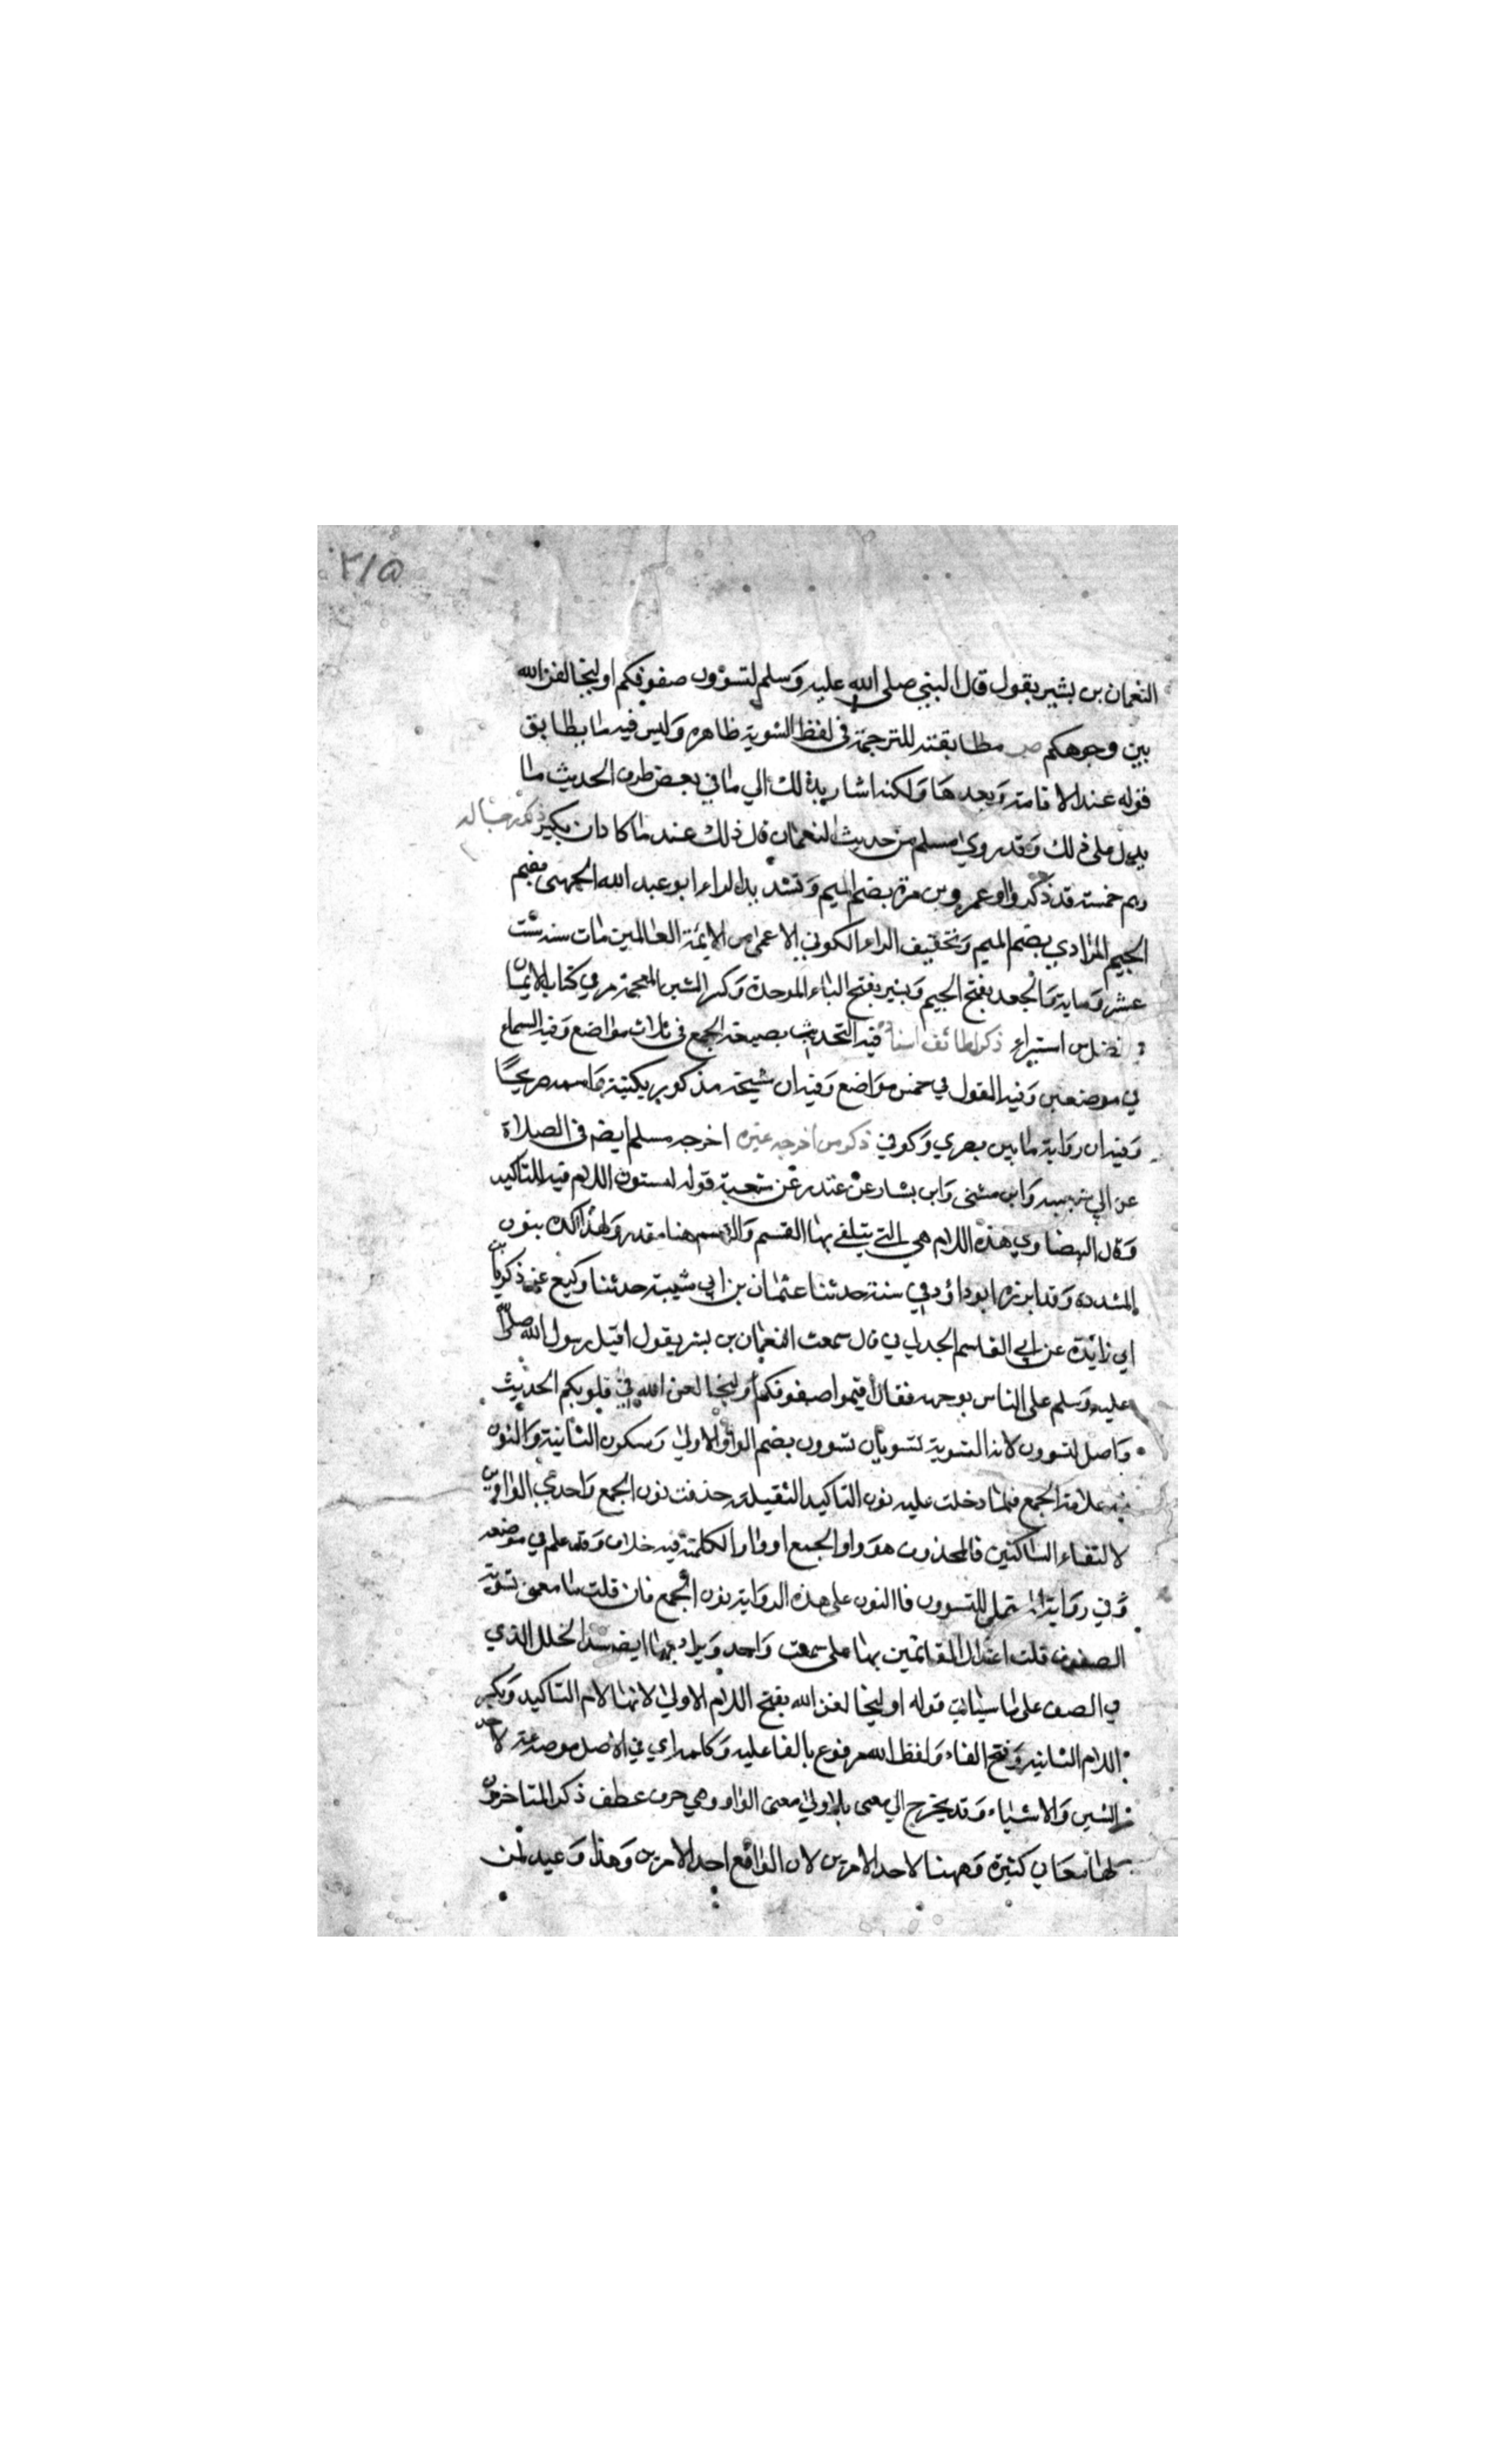 ٣١٥
النعمان بن بشير يقول قال النبي صلى الله عليه وسلم لتسوون صفوفكم او ليخالفن الله
بين وجوهكم ص مطابقته للترجمة في لفظ التسوية ظاهره وليس فيه ما يطابق
قوله عند الاقامة وبعدها ولكنه اشار بذلك الي ما في بعض طرق الحديث ما
يدل على ذلك وقد روي مسلم من حديث النعمان قال ذلك عند ما كاد ان يكبر ذكر رجاله
وهم خمسة قد ذكروا وعمرو بن مرة بضم الميم وتشديد الراء ابو عبد الله الجهني بضم
الجيم المرادي بضم الميم وتخفيف الراء الكوفي الاعمى من الايمة العالمين مات سنة ست
عشر وماية والجعد بفتح الجيم وبشير بفتح الباء الموحدة وكسر الشين المعجمة مر في كتاب الايمان
في فضل من استبراء ذكر لطائف اسناده فيه التحديث بصيغة الجمع في ثلاث مواضع وفيه السماع
في موضعين وفيه القول في خمس مواضع وفيه ان شيخه مذكور بكنيته واسمه صريحًا
وفيه ان رواية ما بين بصري وكوفي ذكر من اخرجه غيره اخرجه مسلم ايضا في الصلاة
عن ابي شيبه وابن مثنى وابن بشار عن غندر عن شعبة قوله لتسون اللام فيه للتاكيد
وقال البيضاوي هذه اللام هي التي يتلقى بها القسم والقسم هنا مقدر ولهذا اكده بنون
المشدده وقد ابرزه ابو داؤد في سننه حدثنا عثمان بن ابي شيبة حدثنا وكيع عن زكريا بن
ابي زائدة عن ابي القاسم الجدلي قال سمعت النعمان بن بشير يقول اقبل رسول الله صلى
عليه وسلم على الناس بوجهه فقال اقيموا صفوفكم او ليخالفن الله في قلوبكم الحديث
واصل لتسوون لانه التسوية تسويان تسوون بضم الواو الاولى وسكون الثانية والنون
فيه علامة الجمع فلما دخلت عليه نون التاكيد الثقيلة حذفت نون الجمع واحدي الواوين
لالتقاء الساكنين فالمحذوف هو واو الجمع او واو الكلمة فيه خلاف وقد علم في موضعه
وفي رواية المستملي للتسوون فاالنون على هذه الرواية نون الجمع فان قلت ما معنى تسوية
الصفوف قلت اعتدال القائمين بها على سمت واحد ويراد بها ايضا سد الخلل الذي
في الصف على ما سياتي قوله او ليخالفن الله بفتح اللام الاولى لانها لام التاكيد وبكسر
اللام الثانية وفتح الفاء ولفظ الله مرفوع بالفاعليه وكلمة اي في الاصل موضوعة لاحد
الشيين والاشياء وقد يخرج الي معنى بل اولي معنى الواو وهي حرف عطف ذكر المتاخرون
لها معاني كثيرة وههنا لاحد الامرين لان الواقع احد الامرين وهذا وعيد لمن